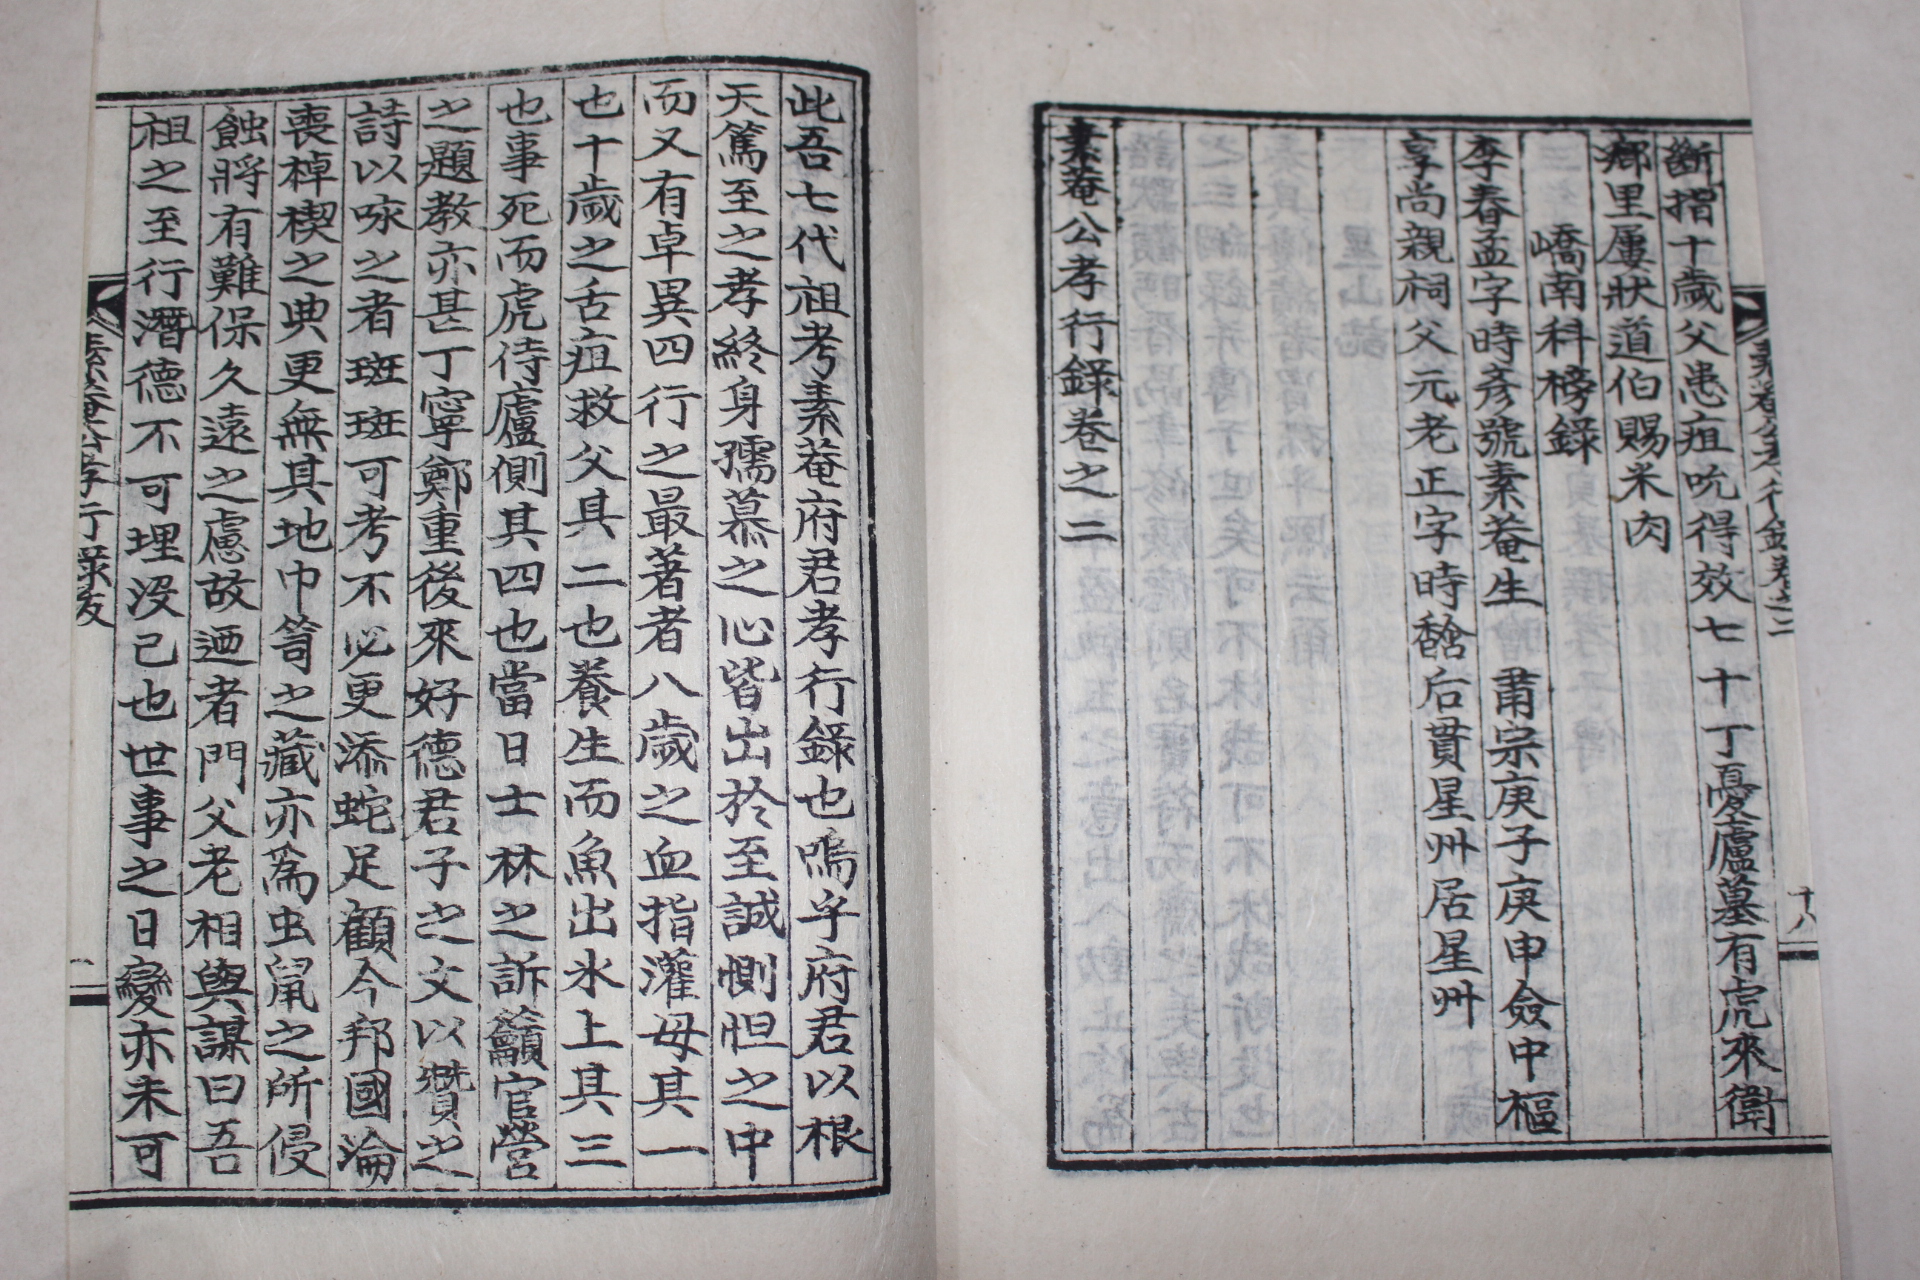 斷指十歲父患疽吮得效七十丁憂廬墓有虎來衛
鄕里屢狀道伯賜米肉
嶠南科榜錄
李春孟字時彦號素菴生 肅宗庚子庚申僉中樞
享尚親祠父元老正字時馠后貫星州居星州
素菴公孝行錄卷之二
十八
此吾七代祖考素菴府君孝行錄也嗚乎府君以根
天篤至之孝終身孺慕之心皆出於至誠惻怛之中
而又有卓異四行之最著者八歲之血指灌母其一
也十歲之舌疽救父具二也養生而魚出氷上其三
也事死而虎侍廬側其四也當日士林之訴籲官營
之題教亦甚丁寧鄭重後來好德君子之文以贊之
詩以咏之者斑斑可考不必更添蛇足顧今邦國淪
喪棹楔之典更無其地巾笥之藏亦爲虫鼠之所侵
蝕將有難保久遠之慮故迺者門父老相與謀曰吾
祖之至行潛德不可埋沒已也世事之日變亦未可
二